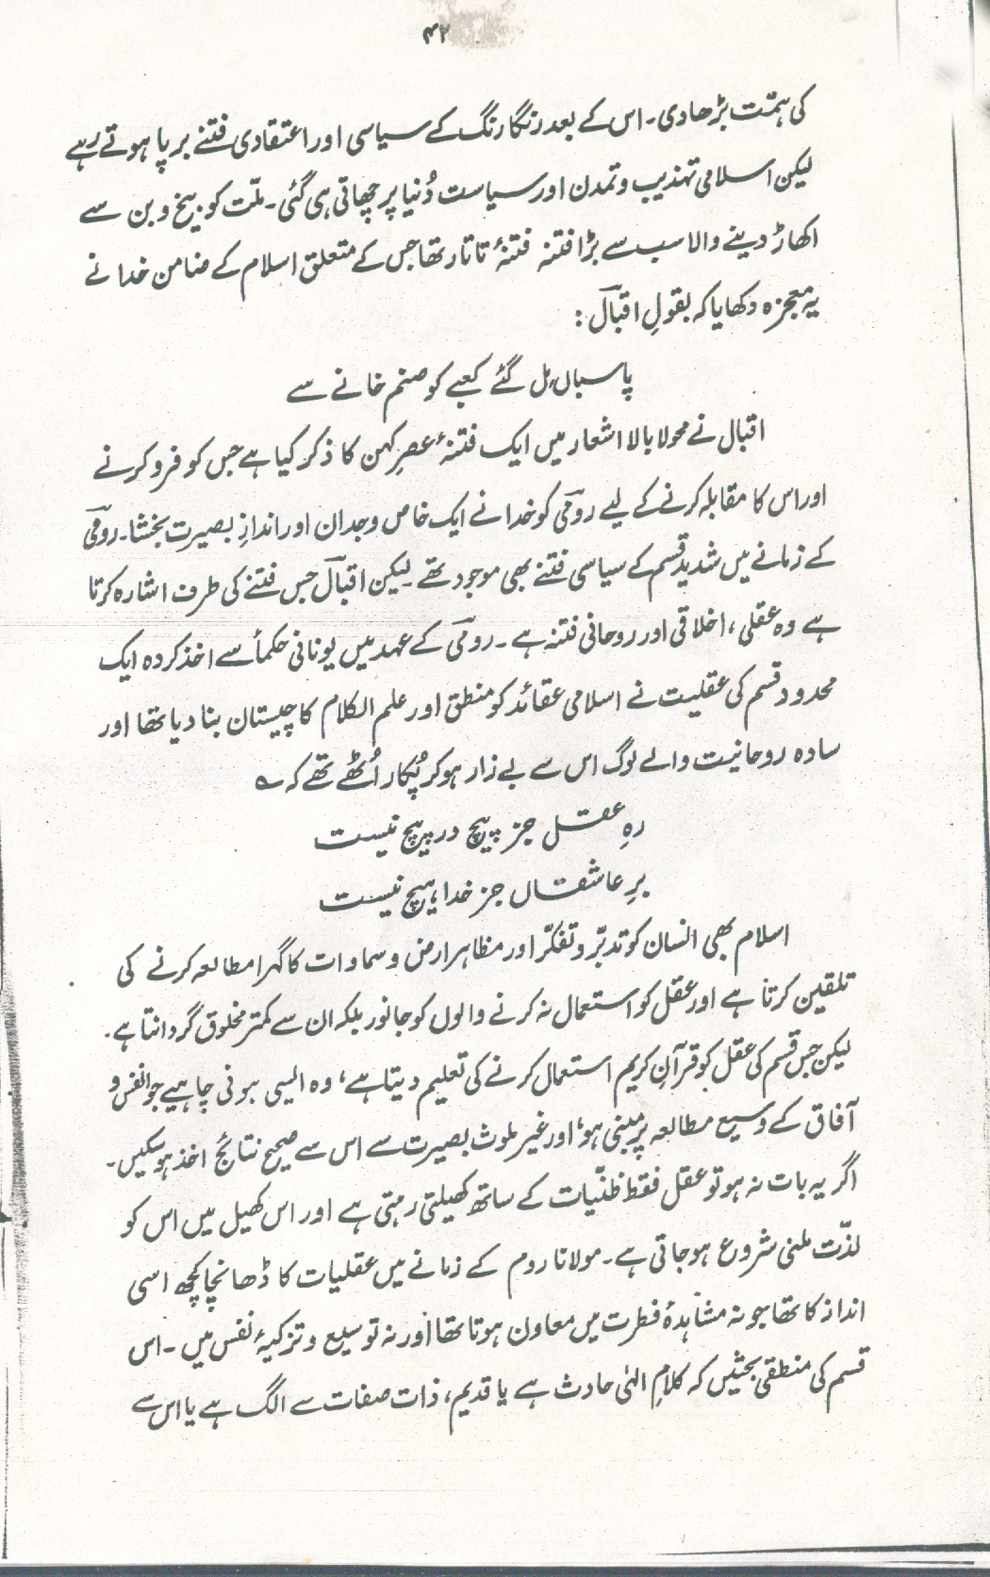 ۴۲
کی ہمّت بڑھا دی۔ اس کے بعد رنگا رنگ کے سیاسی اور اعتقادی فتنے برپا ہوتے رہے
لیکن اسلامی تہذیب و تمدن اور سیاست دُنیا پر چھاتی ہی گئی۔ ملّت کو بیخ و بن سے
اکھاڑ دینے والا سب سے بڑا فتنہ فتنۂ تاتار تھا جس کے متعلق اسلام کے ضامن خدا نے
یہ معجزہ دکھایا کہ بقولِ اقبالؔ :
پاسباں مل گئے کعبے کو صنم خانے سے
اقبال نے محولا بالا اشعار میں ایک فتنۂ عصرِ کہن کا ذکر کیا ہے جس کو فرو کرنے
اور اس کا مقابلہ کرنے کے لیے رومیؔ کو خدا نے ایک خاص وجدان اور اندازِ بصیرت بخشا۔ رومیؔ
کے زمانے میں شدید قسم کے سیاسی فتنے بھی موجود تھے۔ لیکن اقبالؔ جس فتنے کی طرف اشارہ کرتا
ہے وہ عقلی، اخلاقی اور روحانی فتنہ ہے۔ رومیؔ کے عہد میں یونانی حکمأ سے اخذ کردہ ایک
محدود قسم کی عقلیت نے اسلامی عقائد کو منطق اور علم الکلام کا چیستان بنا دیا تھا اور
سادہ روحانیت والے لوگ اس سے بے زار ہو کر پُکار اُٹھے تھے کہ ؎
رہِ عقل جز پیچ در پیچ نیست
برِ عاشقاں جز خدا ہیچ نیست
اسلام بھی انسان کو تدبّر و تفکّر اور مظاہر ارض و سماوات کا گہرا مطالعہ کرنے کی
تلقین کرتا ہے اور عقل کو استعمال نہ کرنے والوں کو جانور بلکہ ان سے کمتر مخلوق گردانتا ہے۔
لیکن جس قسم کی عقل کو قرآن کریم استعمال کرنے کی تعلیم دیتا ہے، وہ ایسی ہونی چاہیے جو انفس و
آفاق کے وسیع مطالعہ پر مبنی ہو، اور غیر ملوث بصیرت سے اس سے صحیح نتائج اخذ ہو سکیں۔
اگر یہ بات نہ ہو تو عقل فقط ظنّیات کے ساتھ کھیلتی رہتی ہے اور اس کھیل میں اس کو
لذّت ملنی شروع ہو جاتی ہے۔ مولانا روم کے زمانے میں عقلیات کا ڈھانچا کچھ اسی
انداز کا تھا جو نہ مشاہدۂ فطرت میں معاون ہوتا تھا اور نہ توسیع و تزکیۂ نفس میں ۔ اس
قسم کی منطقی بحثیں کہ کلامِ الٰہی حادث ہے یا قدیم، ذات صفات سے الگ ہے یا اس سے